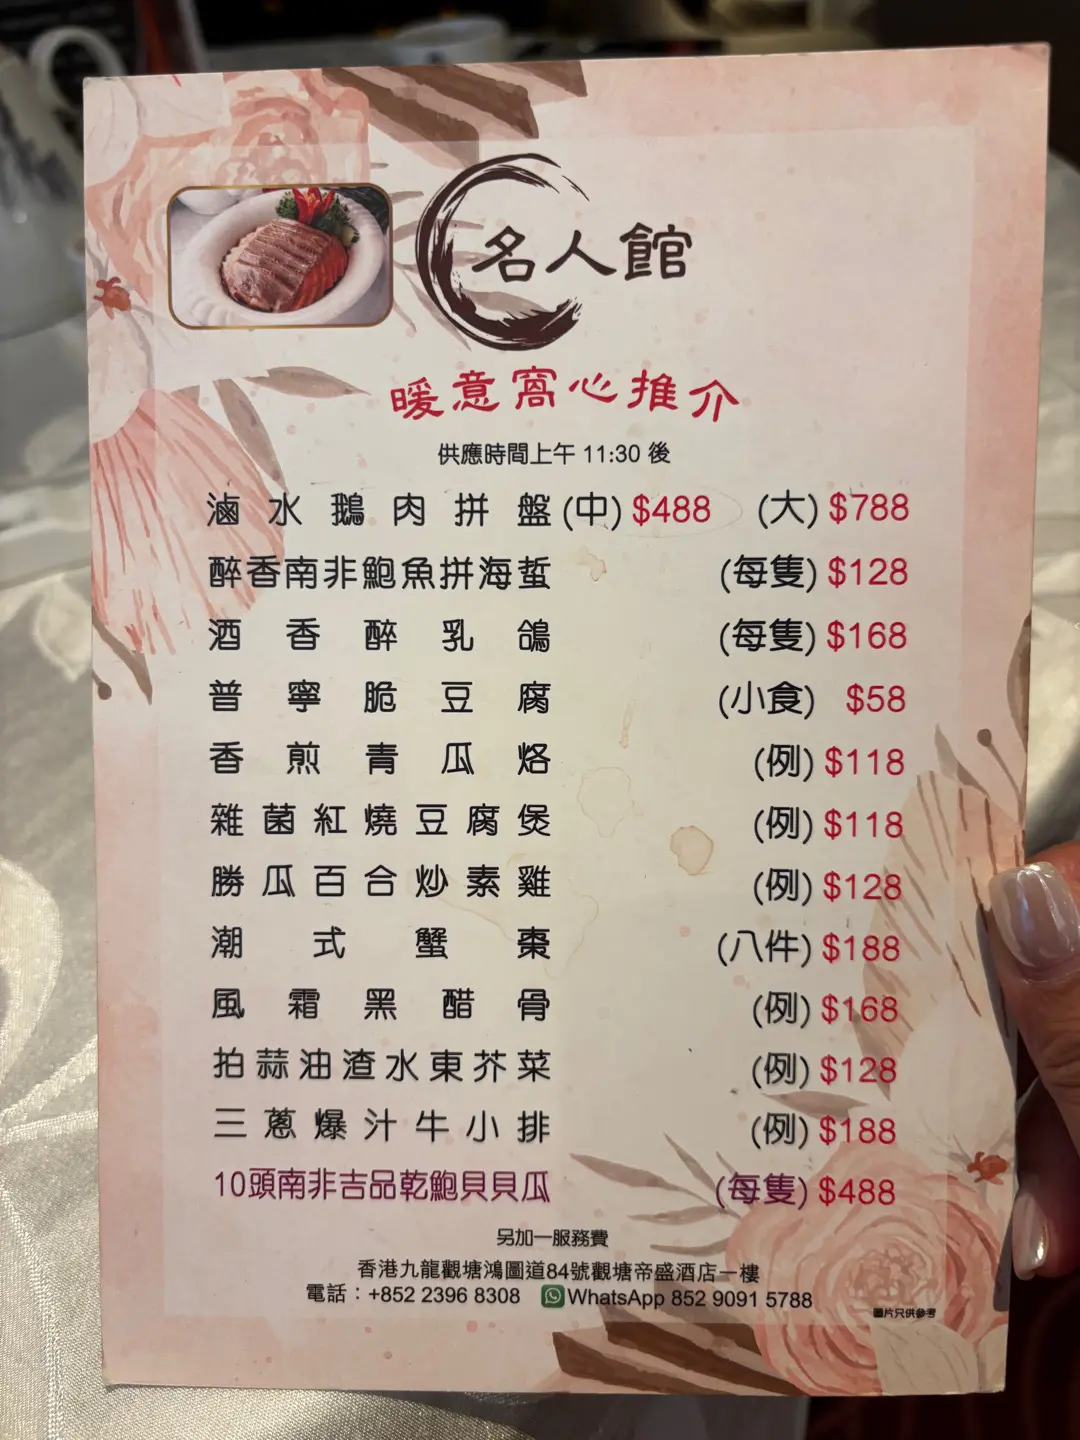 名人館
暖意窩心推介
供應時間上午 11:30 後
滷水鵝肉拼盤(中) $488 (大) $788
醉香南非鮑魚拼海蜇 (每隻) $128
酒香醉乳鴿 (每隻) $168
普寧脆豆腐 (小食) $58
香煎青瓜烙 (例) $118
雜菌紅燒豆腐煲 (例) $118
勝瓜百合炒素雞 (例) $128
潮式蟹棗 (八件) $188
風霜黑醋骨 (例) $168
拍蒜油渣水東芥菜 (例) $128
三蔥爆汁牛小排 (例) $188
10頭南非吉品乾鮑貝貝瓜 (每隻) $488
另加一服務費
香港九龍觀塘鴻圖道84號觀塘帝盛酒店一樓
電話：+852 2396 8308 WhatsApp 852 9091 5788
圖片只供參考